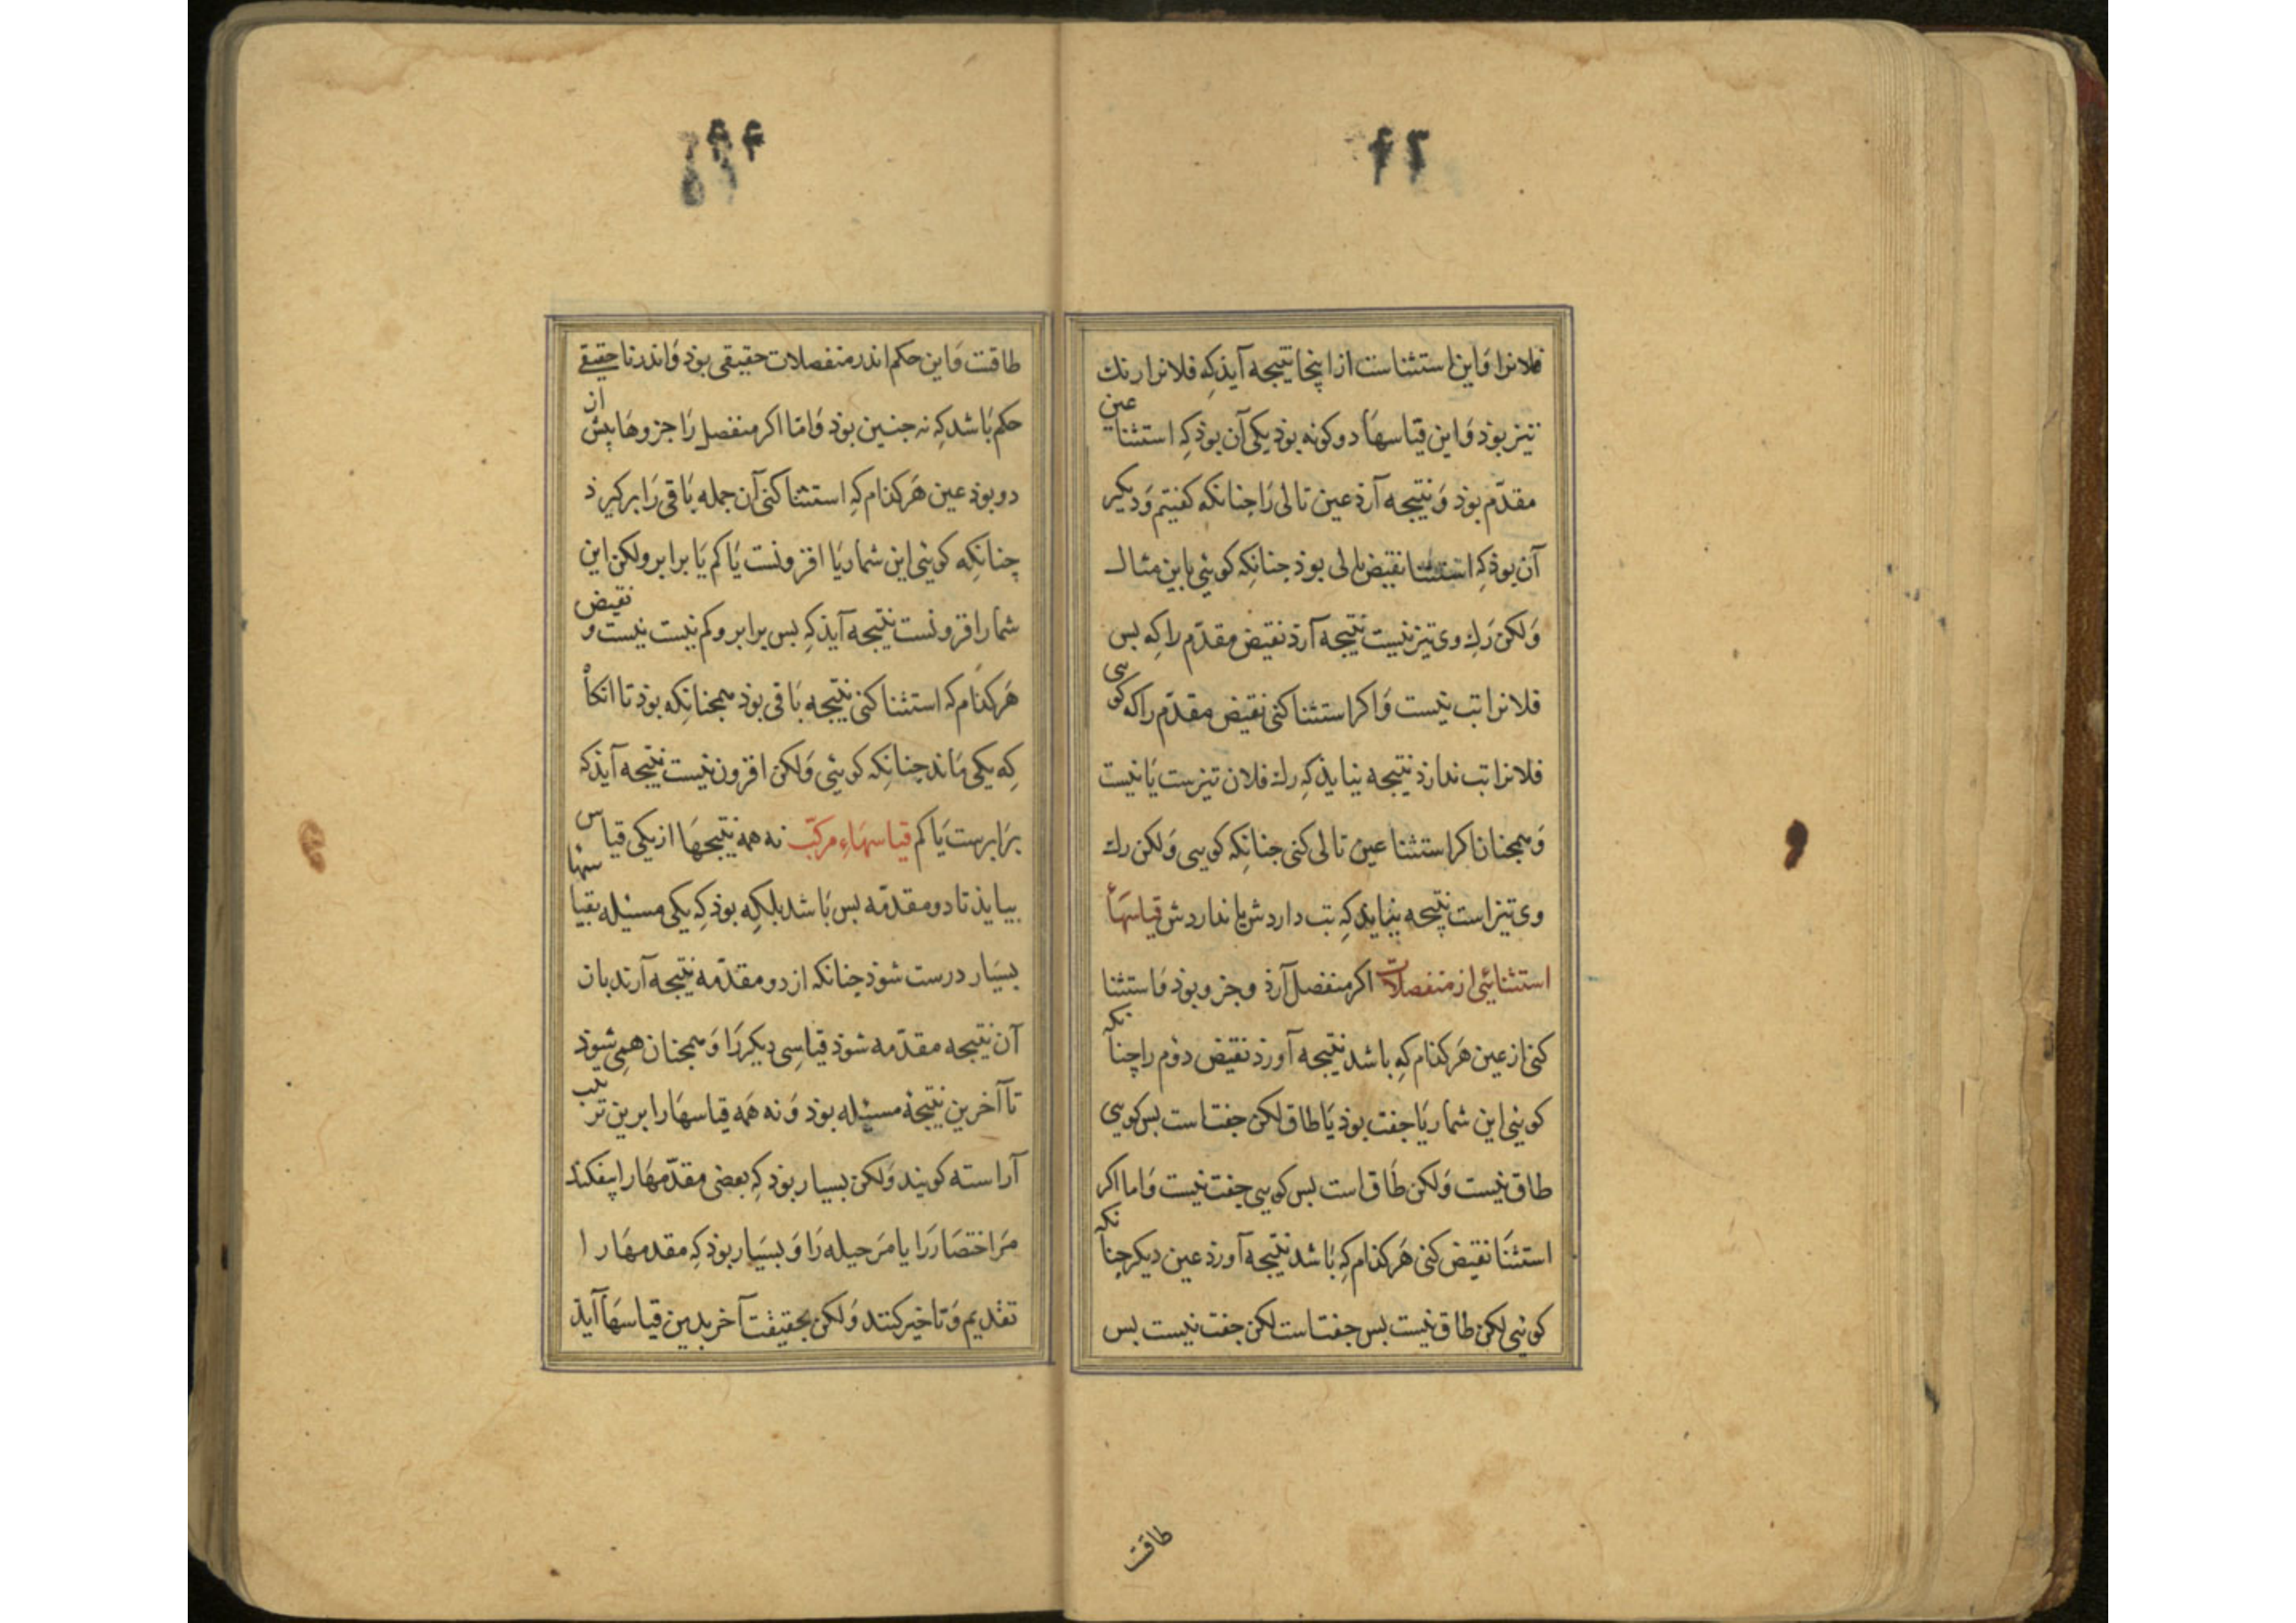 ۴۲
فلانرا وَاین استثناست ازاینجا نتیجه آیذ کِه فلانرا رنك
تیز بوذ وَاین قیاسهَا دو کونه بوذ یکی آن بوذ کِه استثنا عین
مقدّم بوذ وَ نتیجه آرذ عین تالی رَا جنانکه کفتیم وَ دیکر
آن بوذ کِه استثنا نقیض تالی بوذ جنانکِه کوئی باین مثال
وَلکن رَك وی تیز نیست نتیجه آرذ نقیض مقدّم را کِه بس
فلانرا تب نیست وَاکر استثنا کنی نقیض مقدّم را که کویی
فلانرا تب ندارذ نتیجه نیایذ کِه رك فلان تیزست یَا نیست
وَهمجنان اکر استثنا عین تالی کنی جنانکِه کویی وَلکن رك
وی تیز است نتیجه نیایذ کِه تب داردش یا نداردش قیاسهَاء
استثنائی از منفصلات اکر منفصل آرذ وجزو بوذ وَاستثنا
کنی از عین هَرکذام کِه باشد نتیجه آورذ نقیض دوم را چنانکه
کوئی این شمار یَا جفت بوذ یَا طاق لکن جفتاست بس کویی
طاق نیست وَلکن طَاق است بس کویی جفت نیست وَاما اکر
استثنَا نقیض کنی هَرکذام کِه بَاشد نتیجه آورذ عین دیکر چنانکه
کوئی لکن طاق نیست بس جفتاست لکن جفت نیست بس
طاقت
طاقت وَاین حکم اندر منفصلات حقیقی بوذ وَاندر نا حقیقے
حکم بَاشد کِه نه جنین بوذ وَامّا اکر منفصل رَا جزوهَا بیش از
دو بوذ عین هَرکذام کِه استثنا کنی آن جمله بَاقی رَا برکیرذ
چنانکِه کوئی این شمار یَا افزونست یَا کم یَا برابر ولکن این
شمار افزونست نتیجه آیذ کِه بس برابر وکم نیست نیست و نقیض
هَرکذَام که استثنا کنی نتیجه بَاقی بوذ همجنانکِه بوذ تا انکاْ
کِه یکی مَاند چنانکِه کوئی وَلکن افزون نیست نتیجه آیذ که
برَابرست یَا کم قیاسهَاءِ مرکّب نه همه نتیجهَا از یکی قیاس
بیایذ تا دو مقدّمه بس بَاشد بلکِه بوذ کِه یکی مسئله بقیاسها
بسیَار درست شوذ چنانکه از دو مقدّمه نتیجه آرند بان
آن نتیجه مقدّمه شوذ قیاسِی دیکر رَا وَهمجنان همِی شوذ
تا آخرین نتیجهٔ مسئله بوذ وَنه هَمه قیاسهَا را برین ترتیب
آراسته کویند وَلکن بسیار بوذ کِه بعضی مقدّمهَا را بیفکنند
مَر اختصَار رَا یا مَر حیله رَا وَ بسیَار بوذ کِه مقدمهَا را
تقدیم وَتاخیر کنند وَلکن بحقیقت آخر بدین قیاسهَا آیذ